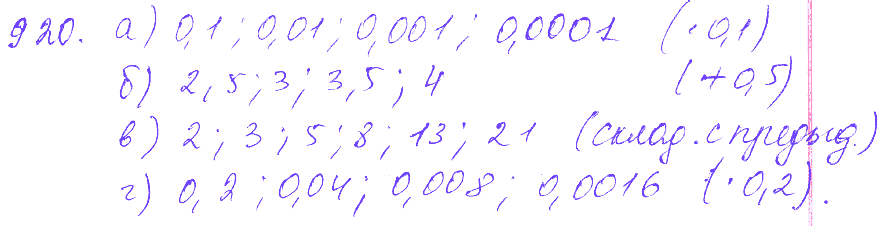 920. а) 0,1; 0,01; 0,001; 0,0001 (·0,1)
б) 2,5; 3; 3,5; 4 (+0,5)
в) 2; 3; 5; 8; 13; 21 (склад. с предыд.)
г) 0,2; 0,04; 0,008; 0,0016 (·0,2).